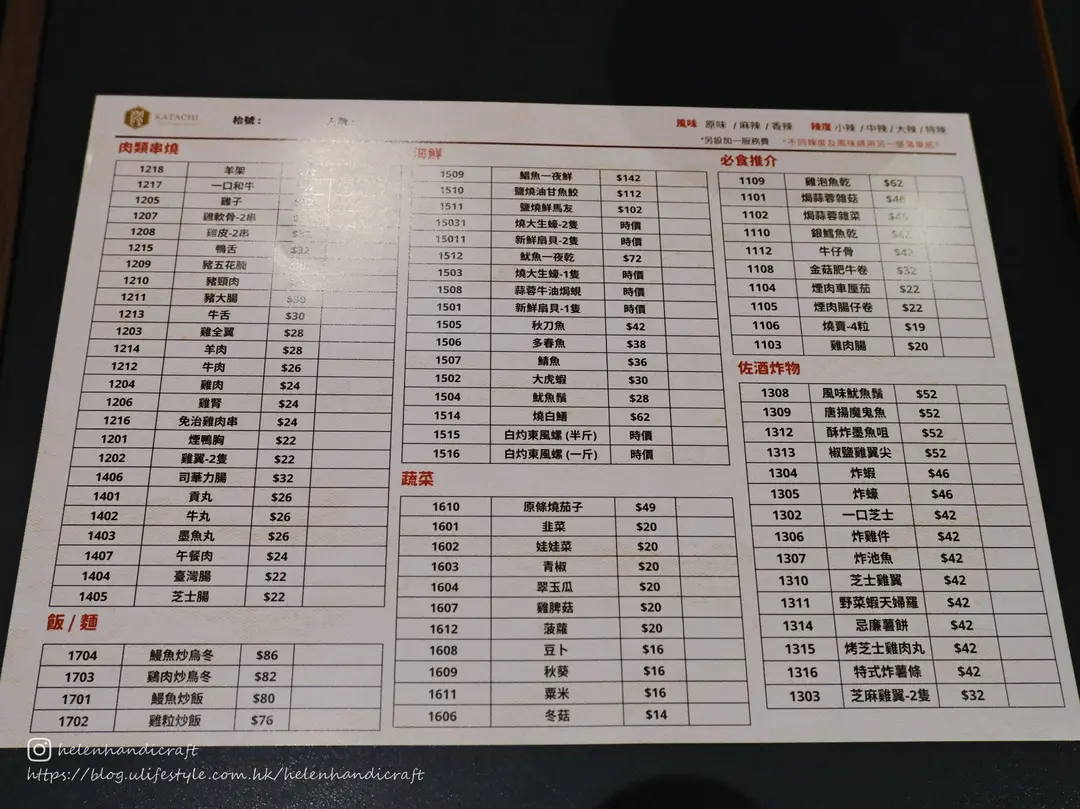 KATACHI
枱號：
人數：
風味 原味 / 麻辣 / 香辣 辣度 小辣 / 中辣 / 大辣 / 特辣
*另設加一服務費 *不同辣度及風味請用另一張落單紙*
肉類串燒
1218 羊架
1217 一口和牛
1205 雞子
1207 雞軟骨-2串
1208 雞皮-2串
1215 鴨舌 $32
1209 豬五花腩
1210 豬頸肉
1211 豬大腸 $30
1213 牛舌 $30
1203 雞全翼 $28
1214 羊肉 $28
1212 牛肉 $26
1204 雞肉 $24
1206 雞腎 $24
1216 免治雞肉串 $24
1201 煙鴨胸 $22
1202 雞翼-2隻 $22
1406 司華力腸 $32
1401 貢丸 $26
1402 牛丸 $26
1403 墨魚丸 $26
1407 午餐肉 $24
1404 臺灣腸 $22
1405 芝士腸 $22
飯 / 麵
1704 鰻魚炒烏冬 $86
1703 鷄肉炒烏冬 $82
1701 鰻魚炒飯 $80
1702 雞粒炒飯 $76
海鮮
1509 鯧魚一夜鮮 $142
1510 鹽燒油甘魚鮫 $112
1511 鹽燒鮮馬友 $102
15031 燒大生蠔-2隻 時價
15011 新鮮扇貝-2隻 時價
1512 魷魚一夜乾 $72
1503 燒大生蠔-1隻 時價
1508 蒜蓉牛油焗蜆 時價
1501 新鮮扇貝-1隻 時價
1505 秋刀魚 $42
1506 多春魚 $38
1507 鯖魚 $36
1502 大虎蝦 $30
1504 魷魚鬚 $28
1514 燒白鱔 $62
1515 白灼東風螺 (半斤) 時價
1516 白灼東風螺 (一斤) 時價
蔬菜
1610 原條燒茄子 $49
1601 韭菜 $20
1602 娃娃菜 $20
1603 青椒 $20
1604 翠玉瓜 $20
1607 雞脾菇 $20
1612 菠蘿 $20
1608 豆卜 $16
1609 秋葵 $16
1611 粟米 $16
1606 冬菇 $14
必食推介
1109 雞泡魚乾 $62
1101 焗蒜蓉雜菇 $46
1102 焗蒜蓉雜菜
1110 銀鱈魚乾
1112 牛仔骨 $42
1108 金菇肥牛卷 $32
1104 煙肉車厘茄 $22
1105 煙肉腸仔卷 $22
1106 燒賣-4粒 $19
1103 雞肉腸 $20
佐酒炸物
1308 風味魷魚鬚 $52
1309 唐揚魔鬼魚 $52
1312 酥炸墨魚咀 $52
1313 椒鹽雞翼尖 $52
1304 炸蝦 $46
1305 炸蠔 $46
1302 一口芝士 $42
1306 炸雞件 $42
1307 炸池魚 $42
1310 芝士雞翼 $42
1311 野菜蝦天婦羅 $42
1314 忌廉薯餅 $42
1315 烤芝士雞肉丸 $42
1316 特式炸薯條 $42
1303 芝麻雞翼-2隻 $32
helenhandicraft
https://blog.ulifestyle.com.hk/helenhandicraft